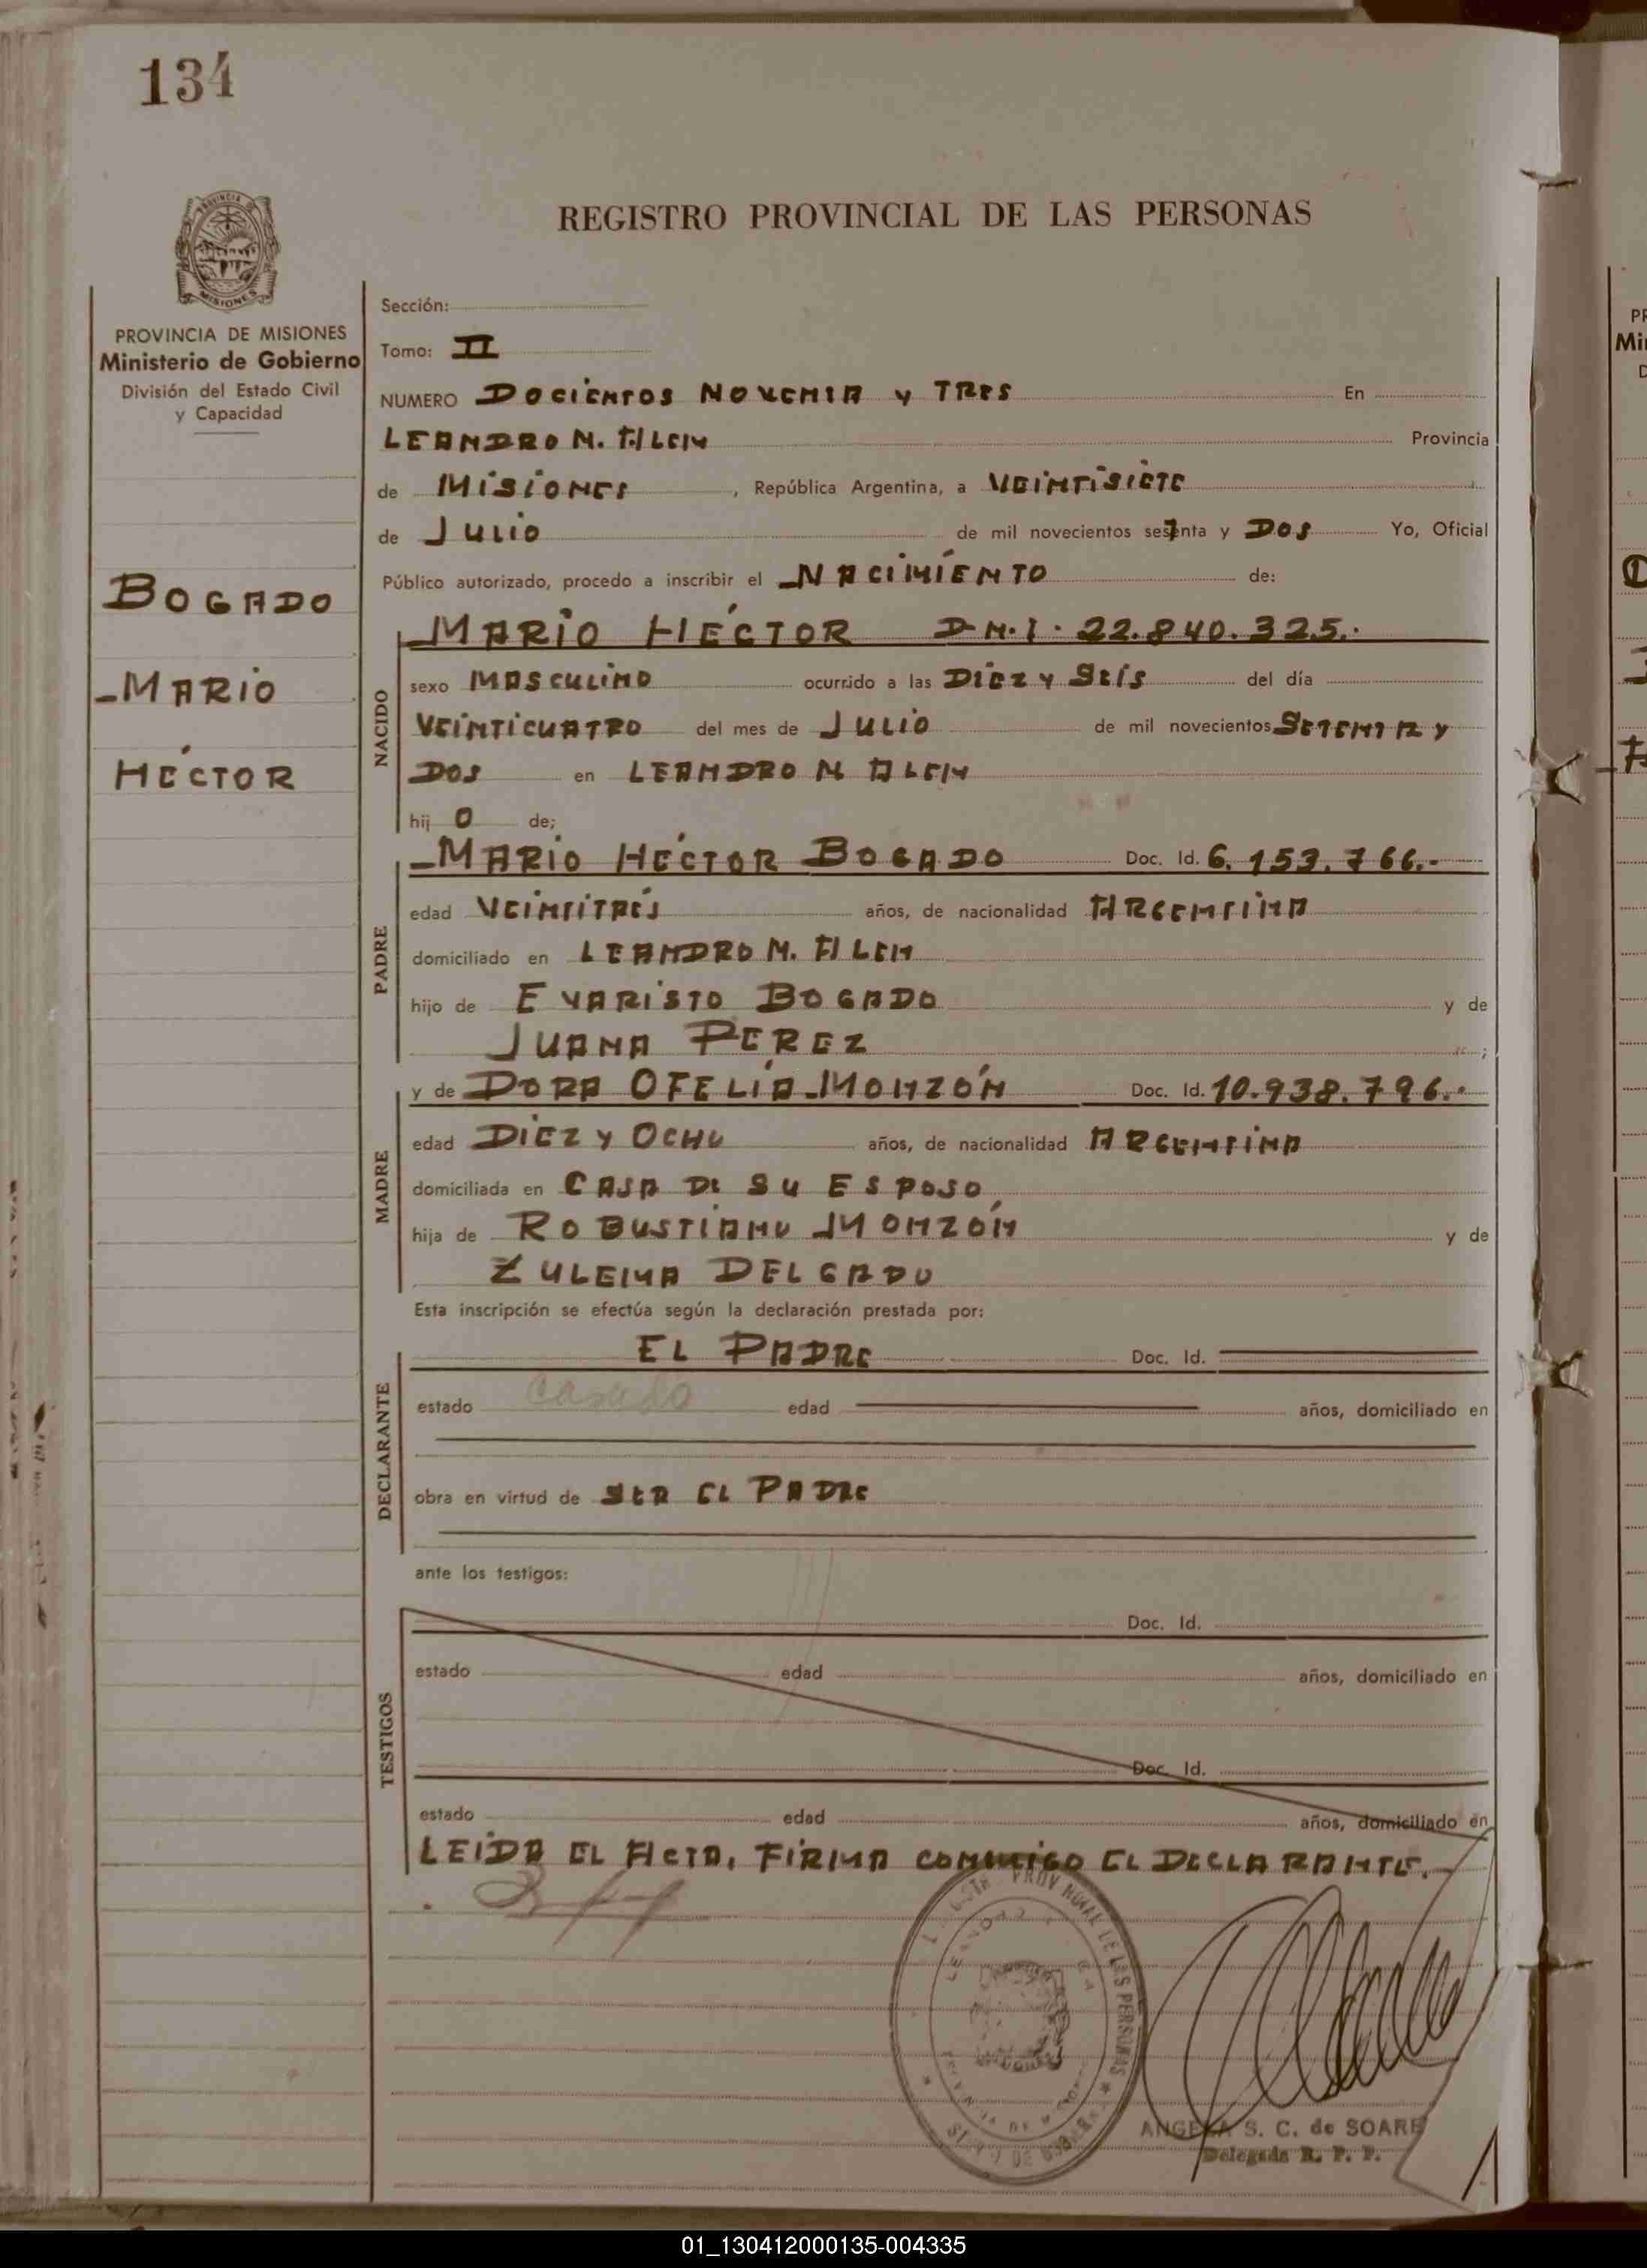 134
PROVINCIA DE MISIONES
REGISTRO PROVINCIAL DE LAS PERSONAS
PROVINCIA DE MISIONES
Ministerio de Gobierno
División del Estado Civil
y Capacidad
BOGADO
MARIO
HÉCTOR
Sección:
Tomo: II
NUMERO DOCIENTOS NOVENTA Y TRES En
LEANDRO N. ALEM Provincia
de MISIONES, República Argentina, a VEINTISIETE
de JULIO de mil novecientos setenta y DOS Yo, Oficial
Público autorizado, procedo a inscribir el NACIMIENTO de:
NACIDO
MARIO HÉCTOR D.N.I. 22.840.325.
sexo MASCULINO ocurrido a las DIEZ Y SEIS del día
VEINTICUATRO del mes de JULIO de mil novecientos SETENTA Y
DOS en LEANDRO N ALEM
hij O de;
PADRE
MARIO HÉCTOR BOGADO Doc. Id. 6.153.766.-
edad VEINTITRÉS años, de nacionalidad ARGENTINA
domiciliado en LEANDRO N. ALEM
hijo de EVARISTO BOGADO y de
JUANA PEREZ ;
MADRE
y de DORA OFELÍA MONZÓN Doc. Id. 10.938.796.-
edad DIEZ Y OCHO años, de nacionalidad ARGENTINA
domiciliada en CASA DE SU ESPOSO
hija de ROBUSTIANO MONZÓN y de
ZULEMA DELGADO
Esta inscripción se efectúa según la declaración prestada por:
DECLARANTE
EL PADRE Doc. Id.
estado casado edad años, domiciliado en
obra en virtud de SER EL PADRE
ante los testigos:
TESTIGOS
Doc. Id.
estado edad años, domiciliado en
Doc. Id.
estado edad años, domiciliado en
LEIDA EL ACTA, FIRMA CONMIGO EL DECLARANTE.-
ANGELA S. C. de SOARE
Delegada R. P. P.
01_130412000135-004335